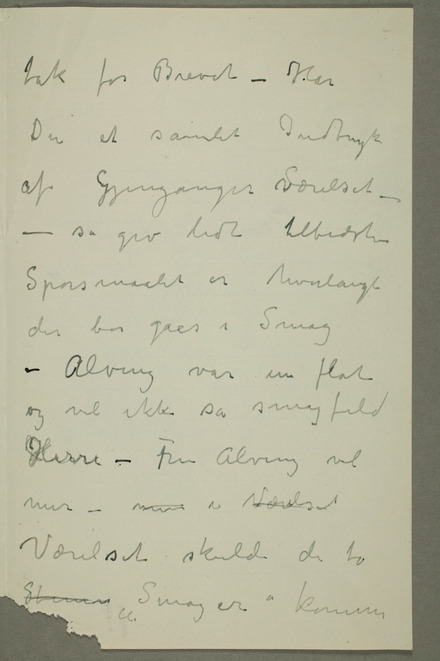 Tak for Brevet – Har
Du et samlet Indtryk
af Gjenganger Værelset –
– så giv lidt tilbedste
Sporsmaalet er hvorlangt
der bør gaes i Smag
– Alving var en flot
og vel ikke sa smagfuld
Herre – Fru Alving vel
mer – i Værelset
Værelset skulde de to
"Smager" komme